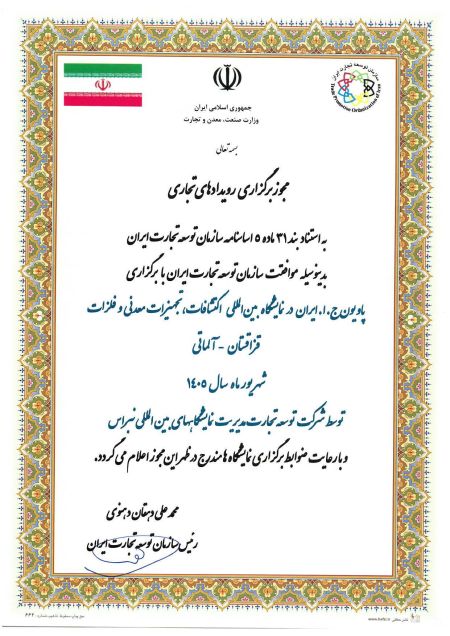 سازمان توسعه تجارت ایران
Trade Promotion Organization of Iran
جمهوری اسلامی ایران
وزارت صنعت، معدن و تجارت
بسمه تعالی
مجوز برگزاری رویدادهای تجاری
به استناد بند ۳۱ ماده ۵ اساسنامه سازمان توسعه تجارت ایران
بدینوسیله موافقت سازمان توسعه تجارت ایران با برگزاری
پاویون ج.ا.ایران در نمایشگاه بین‌المللی اکتشافات، تجهیزات معدنی و فلزات
قزاقستان - آلماتی
شهریور ماه سال ۱۴۰۵
توسط شرکت توسعه تجارت مدیریت نمایشگاههای بین المللی نبراس
و با رعایت ضوابط برگزاری نمایشگاه ها مندرج در ظهر این مجوز اعلام می گردد.
محمد علی دهقان دهنوی
رئیس سازمان توسعه تجارت ایران